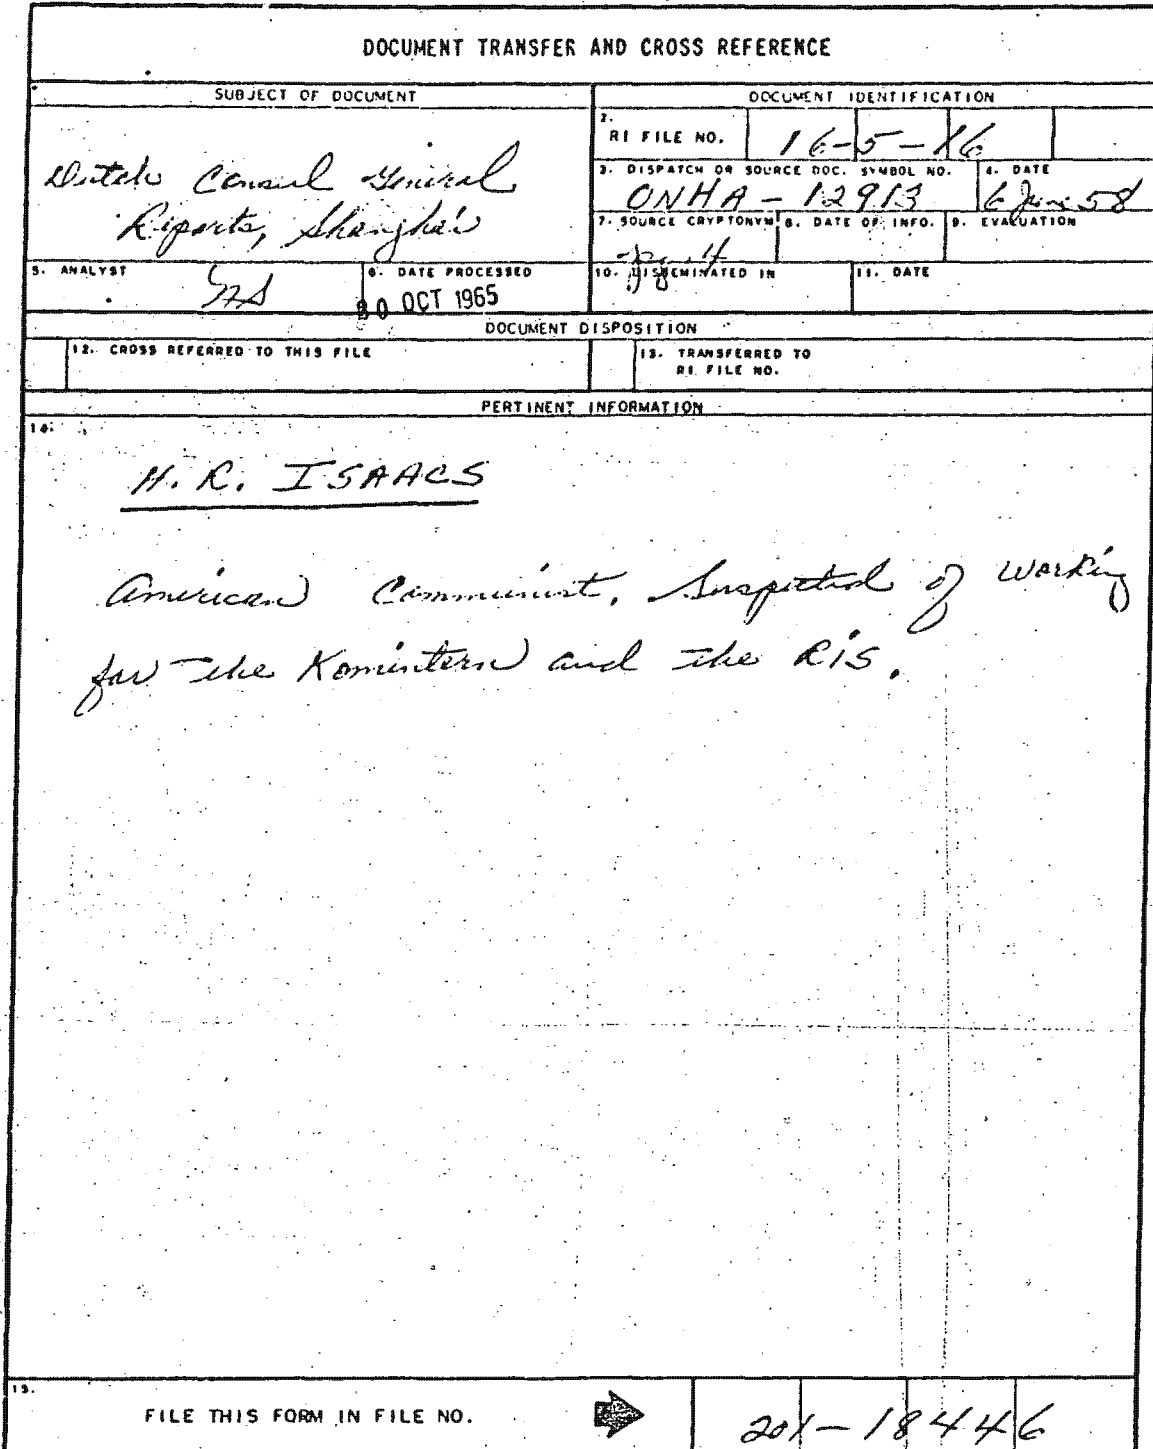 DOCUMENT TRANSFER AND CROSS REFERENCE
SUBJECT OF DOCUMENT
DOCUMENT IDENTIFICATION
Dutch Consul General
Reports, Shanghai
2.
RI FILE NO.
16-5-16
3. DISPATCH OR SOURCE DOC. SYMBOL NO.
ONHA - 12913
4. DATE
6 June 58
7. SOURCE CRYPTONYM
8. DATE OF INFO.
9. EVALUATION
5. ANALYST
6. DATE PROCESSED
20 OCT 1965
10. DISSEMINATED IN
11. DATE
DOCUMENT DISPOSITION
12. CROSS REFERRED TO THIS FILE
13. TRANSFERRED TO
RI FILE NO.
PERTINENT INFORMATION
14.
H. R. ISAACS
American Communist, Suspected of working
for the Komintern and the RIS.
15.
FILE THIS FORM IN FILE NO.
201-18446